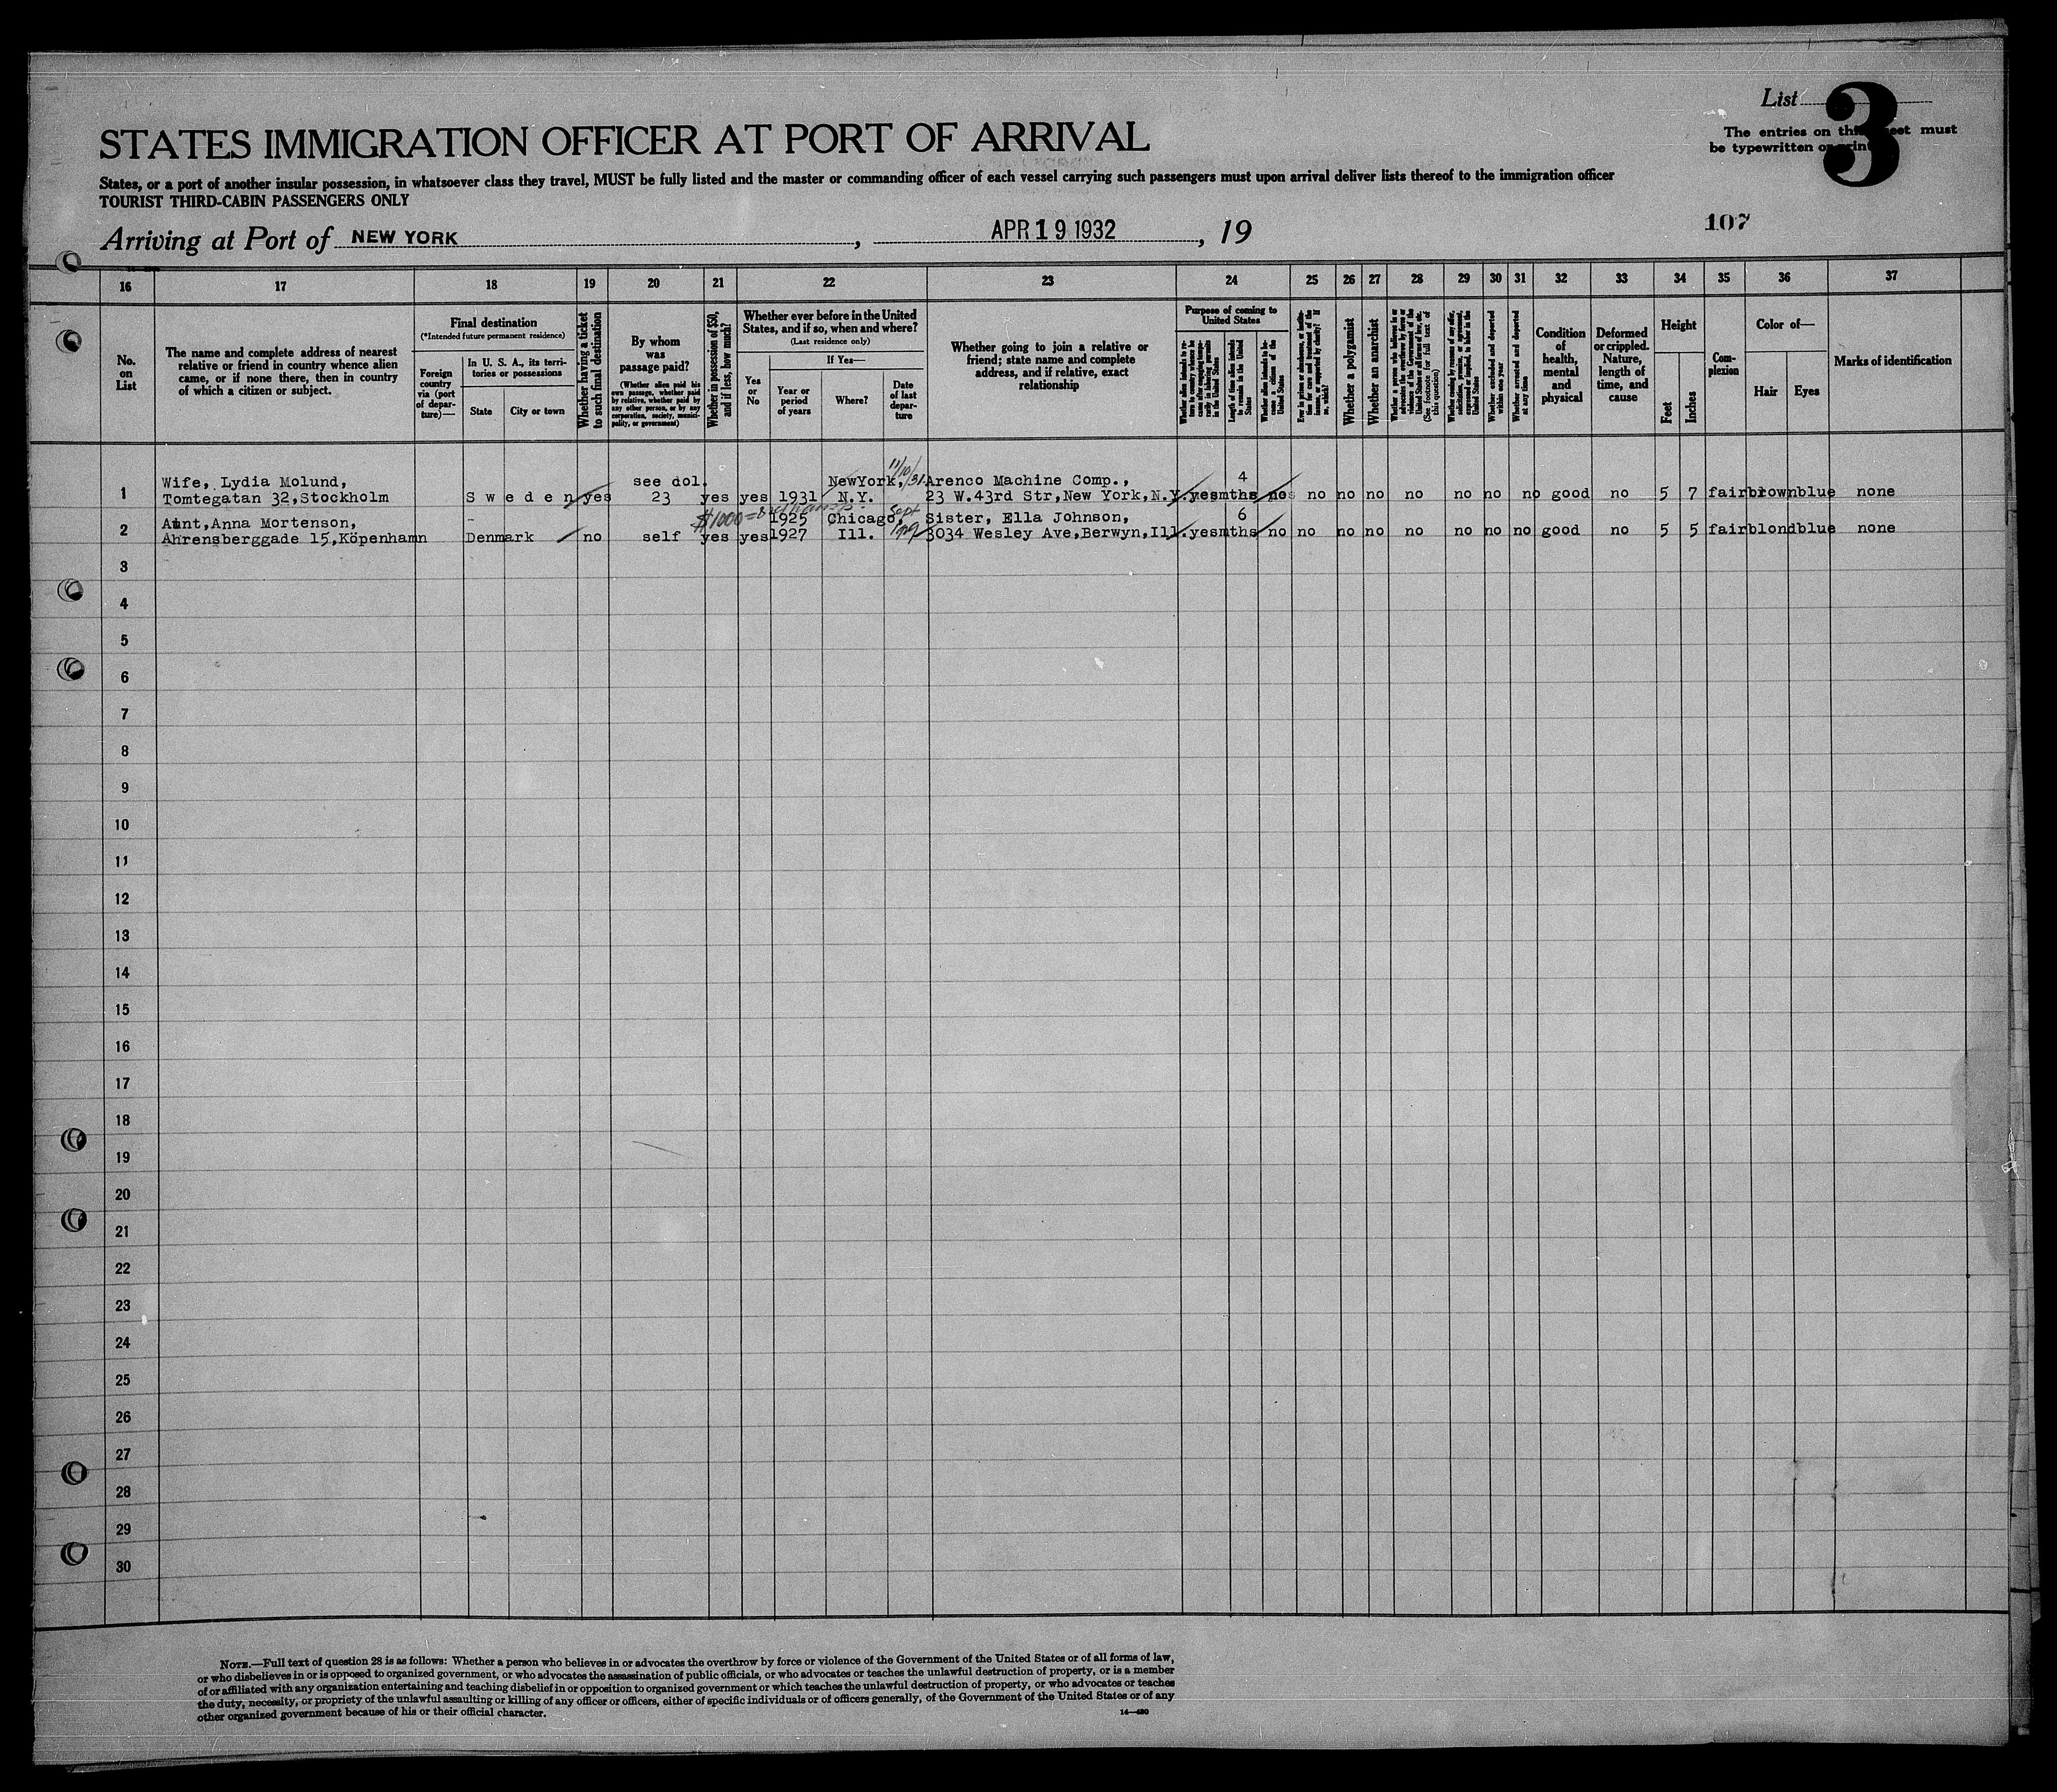 List 3
STATES IMMIGRATION OFFICER AT PORT OF ARRIVAL
The entries on this sheet must
be typewritten or printed
States, or a port of another insular possession, in whatsoever class they travel, MUST be fully listed and the master or commanding officer of each vessel carrying such passengers must upon arrival deliver lists thereof to the immigration officer
TOURIST THIRD-CABIN PASSENGERS ONLY
107
Arriving at Port of NEW YORK, APR 19 1932, 19
16 17 18 19 20 21 22 23 24 25 26 27 28 29 30 31 32 33 34 35 36 37
No.
on
List
The name and complete address of nearest
relative or friend in country whence alien
came, or if none there, then in country
of which a citizen or subject.
Final destination
(*Intended future permanent residence)
Foreign
country
via (port
of depar-
ture)—
In U. S. A., its terri-
tories or possessions
State
City or town
Whether having a ticket
to such final destination
By whom
was
passage paid?
(Whether alien paid his
own passage, whether paid
by relative, whether paid by
any other person, or by any
corporation, society, munici-
pality, or government)
Whether in possession of $50,
and if less, how much?
Whether ever before in the United
States, and if so, when and where?
(Last residence only)
Yes
or
No
If Yes—
Year or
period
of years
Where?
Date
of last
depar-
ture
Whether going to join a relative or
friend; state name and complete
address, and if relative, exact
relationship
Purpose of coming to
United States
Length of time alien intends
to remain in the United
States
Whether alien intends to be-
come a citizen of the
United States
Whether a polygamist
Whether an anarchist
(See footnote for full text of
this question)
Whether excluded and deported
within one year
Whether arrested and deported
at any time
Condition
of
health,
mental
and
physical
Deformed
or crippled.
Nature,
length of
time, and
cause
Height
Feet
Inches
Com-
plexion
Color of—
Hair
Eyes
Marks of identification
Wife, Lydia Molund, see dol. NewYork, 11/10/31 Arenco Machine Comp., 4
1 Tomtegatan 32,Stockholm Sweden yes 23 yes yes 1931 N.Y. 23 W.43rd Str,New York,N.Y. yes mths no no no no no no no no good no 5 7 fair brown blue none
$1000=
Aunt,Anna Mortenson, - 1925 Chicago, Sept Sister, Ella Johnson, 6
2 Ahrensberggade 15,Köpenhamn Denmark no self yes yes 1927 Ill. 3034 Wesley Ave,Berwyn,Ill. yes mths no no no no no no no no good no 5 5 fair blond blue none
3
4
5
6
7
8
9
10
11
12
13
14
15
16
17
18
19
20
21
22
23
24
25
26
27
28
29
30
NOTE.—Full text of question 28 is as follows: Whether a person who believes in or advocates the overthrow by force or violence of the Government of the United States or of all forms of law,
or who disbelieves in or is opposed to organized government, or who advocates the assassination of public officials, or who advocates or teaches the unlawful destruction of property, or is a member
of or affiliated with any organization entertaining and teaching disbelief in or opposition to organized government or which teaches the unlawful destruction of property, or who advocates or teaches
the duty, necessity, or propriety of the unlawful assaulting or killing of any officer or officers, either of specific individuals or of officers generally, of the Government of the United States or of any
other organized government because of his or their official character.
14—480